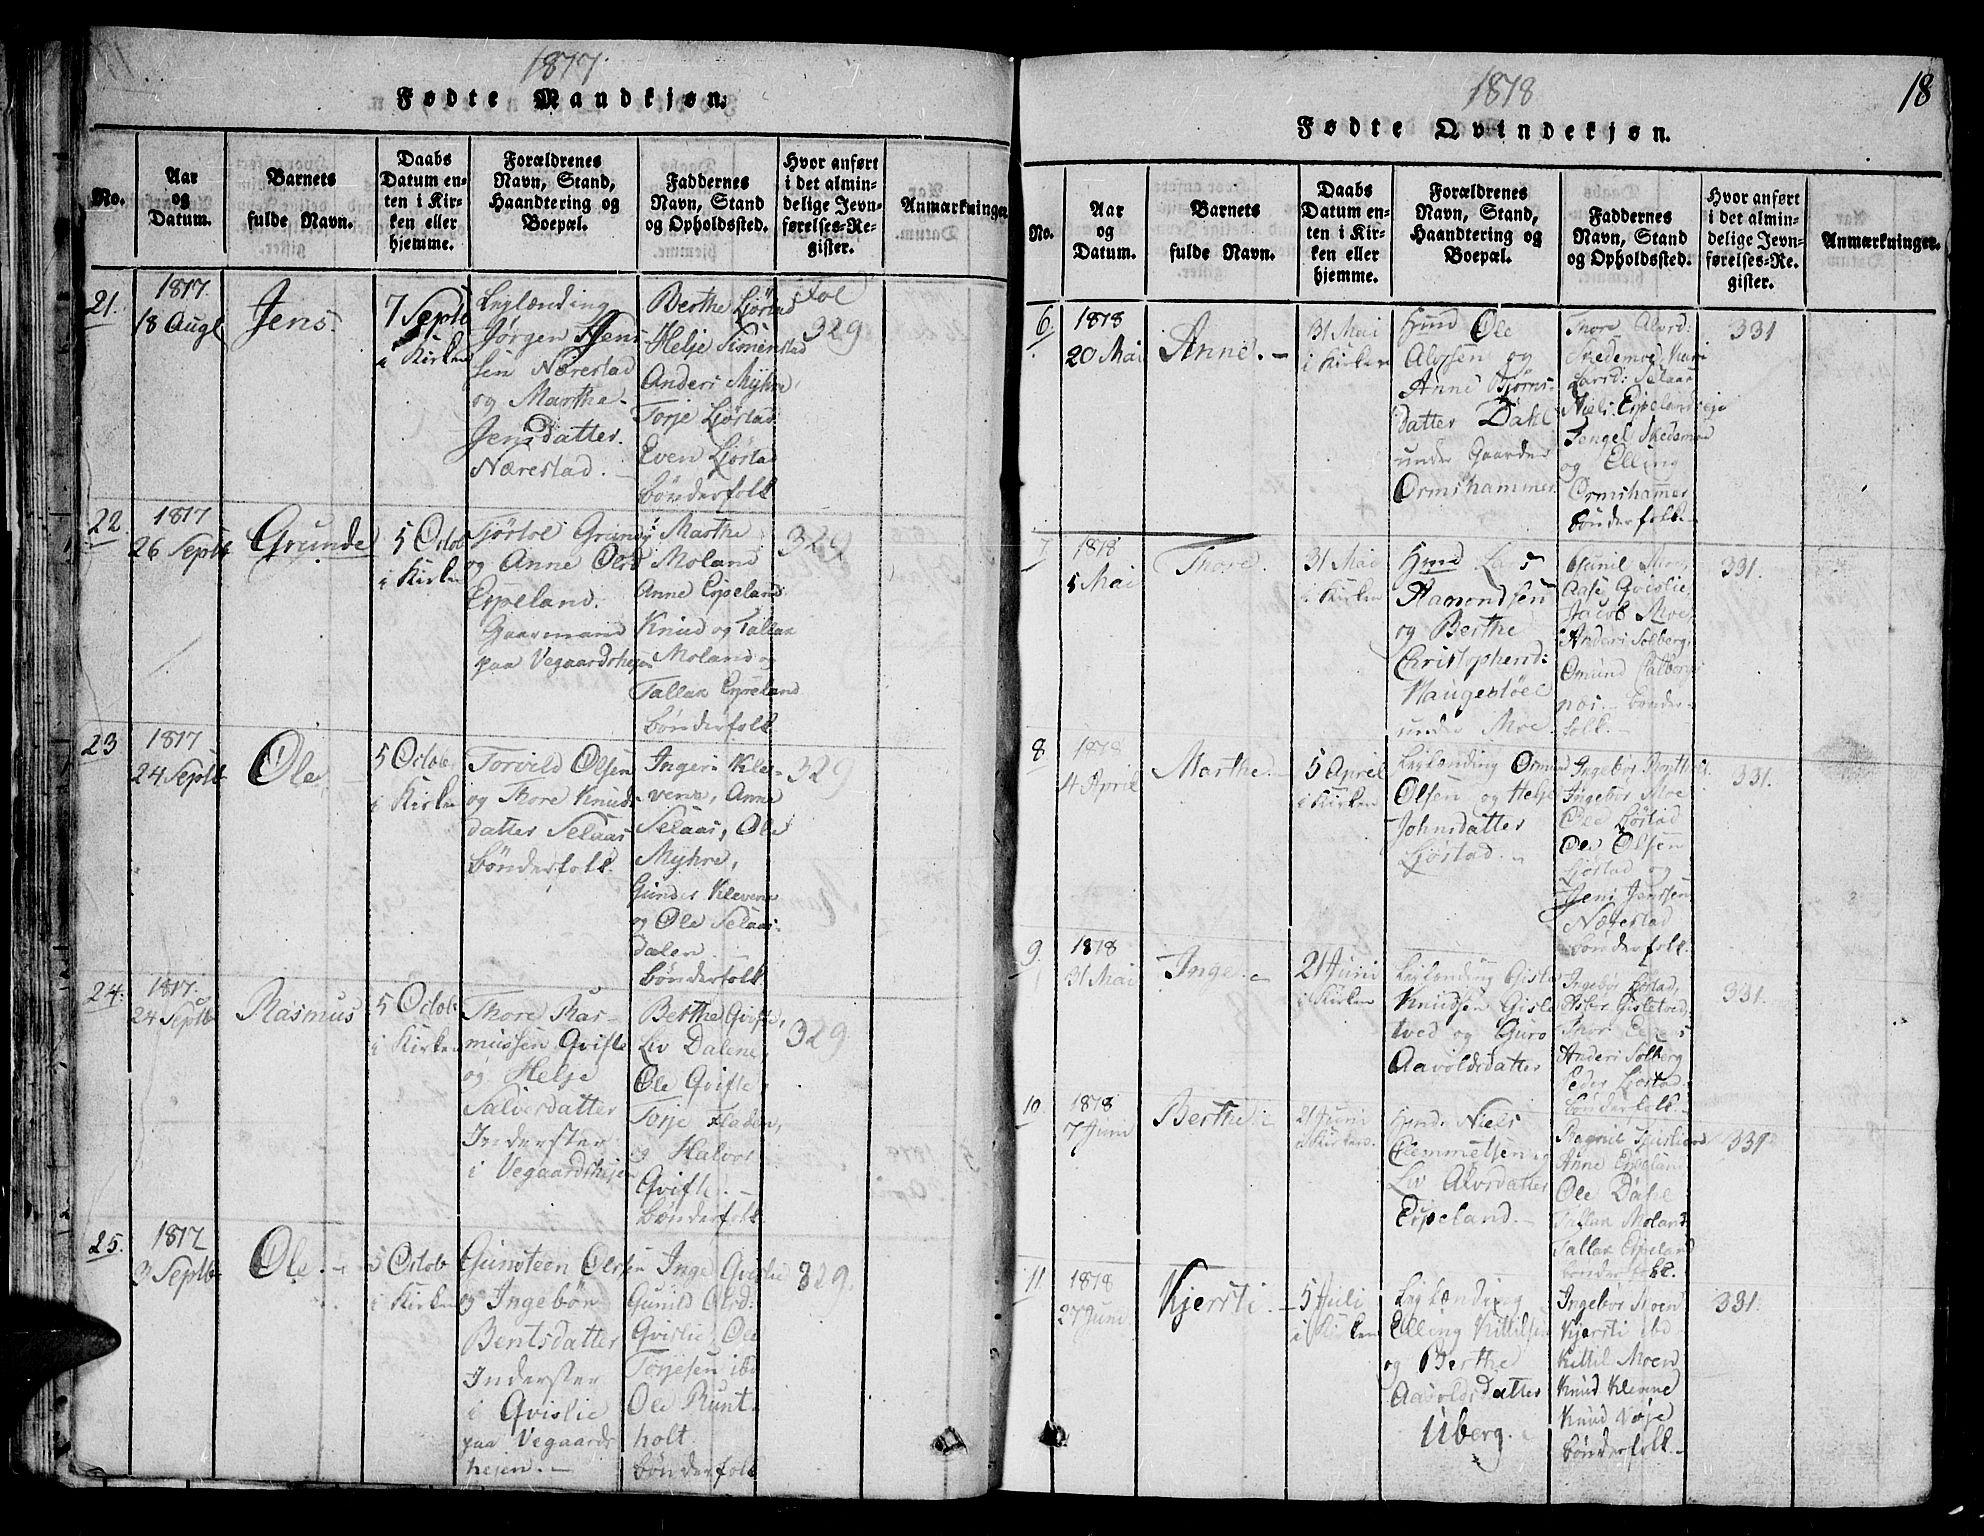 1817.
Fødte Mandkjøn.
No.
Aar
og
Datum.
Barnets
fulde Navn.
Daabs
Datum en-
ten i Kir-
ken eller
hjemme.
Forældrenes
Navn, Stand,
Haandtering og
Boepæl.
Faddernes
Navn, Stand
og Opholdssted.
Hvor anført
i det almin-
delige Jevn-
førelses-Re-
gister.
Anmærkninger.
21.
1817
18 Augt
Jens.
7 Septb
i Kirken
Leylænding
Jørgen Jens
sen Nærestad
og Marthe
Jensdatter.
Nærestad.
Berthe Ljøstad
Helje Simenstad
Anders Myhre,
Torje Ljøstad
Even Ljøstad
bønderfolk
Fol
329
22
1817
26 Septb
Grunde
5 Octob
i Kirken
Tjøstol Grundes
og Anne Olsd
Espeland.
Gaarmand
paa Vegaardshejen
Marthe
Moland
Anne Espeland
Knud og Tallak
Moland og
Tallak Espeland
bønderfolk
329
23
1817
24 Septb
Ole.
5 Octob
i Kirken
Torvild Olsen
og Thore Knuds
datter Selaas
bønderfolk
Inger Kle-
vene, Anne
Selaas, Ole
Myhre,
Gunder Klevene
og Ole Selaas-
dalen.
bønderfolk
329
24.
1817.
24 Septb
Rasmus
5 Octob
i Kirken
Thore Ras-
mussen Qvifte
og Helje
Salvesdatter
Inderster
i Vegaardshejen
Berthe Qvifte,
Liv Dalene,
Ole Qvifte
Torje Fladen,
og Halvor
Qvifte.
bønderfolk
329
25.
1817
3 Septb
Ole.
5 Octob
i Kirken
Gunsteen Olsen
og Ingebør
Bentsdatter
Inderster
i Qvislie
paa Vegaards
hejen.
Inge Qvislie
Gunild Olsd:
Qvislie, Ole
Torjesen ibd
Ole Runt-
holt.
bønderfolk
329.
1818
18
Fødte Qvindekjøn.
No.
Aar
og
Datum.
Barnets
fulde Navn.
Daabs
Datum en-
ten i Kir-
ken eller
hjemme.
Forældrenes
Navn, Stand,
Haandtering og
Boepæl.
Faddernes
Navn, Stand
og Opholdssted.
Hvor anført
i det almin-
delige Jevn-
førelses-Re-
gister.
Anmærkninger.
6.
1818
20 Mai
Anne.
31 Mai
i Kirken
Hmd Ole
Alvsen og
Anne Bjørns-
datter Dahl
under Gaarden
Ormshammer
Thore Alvsd:
Skedsmoe, Kari
Larsd: Selaas
Niels Espelandseje
Tengel Skedsmoe
og Elling
Ormshammer
bønderfolk.
331
7
1818
5 Mai
Thore.
31 Mai
i Kirken
Hmd Lars
Hamondsen
og Berthe
Christophersd:
Haugestøel
under Moe.
Gunil Moe,
Aase Qvislie,
Jacob Moe,
Anders Solberg,
Omund
bønder-
folk.
331.
8
1818
4 April
Marthe.
5 April
i Kirken
Leylænding Omund
Olsen og Helje
Johnsdatter
Ljøstad.
Ingebør
Ingebør Moe
Ole Ljøstad
Ole Olsen
Ljøstad og
Jens Jenssen
Nærestad
bønderfolk.
331.
9.
1818
31 Mai
Inge.
21 Juni
i Kirken
Leylænding Gisle
Knudsen Gisle
tved og Guro
Aavoldsdatter
Ingebør Ljøstad,
Gisletved,
Anders Solberg
Peder Ljøstad.
bønderfolk.
331.
10.
1818
7 Juni
Berthe.
21 Juni
i Kirken.
Hmd: Niels
Clemmetsen og
Liv Alvsdatter
Espeland.
Ragnil
Anne Espeland
Ole Dahl
Tallak Moland
Tallak Espeland
bønderfolk.
331
11.
1818
27 Juni
Kjersti
5 Juli
i Kirken
Leylænding
Elling Kittilsen
og Berthe
Aavoldsdatter
Uberg.
Ingebør Moen
Kjersti ibd
Kittil Moen
Knud Klevene
Knud Voje
bønderfolk.
331.